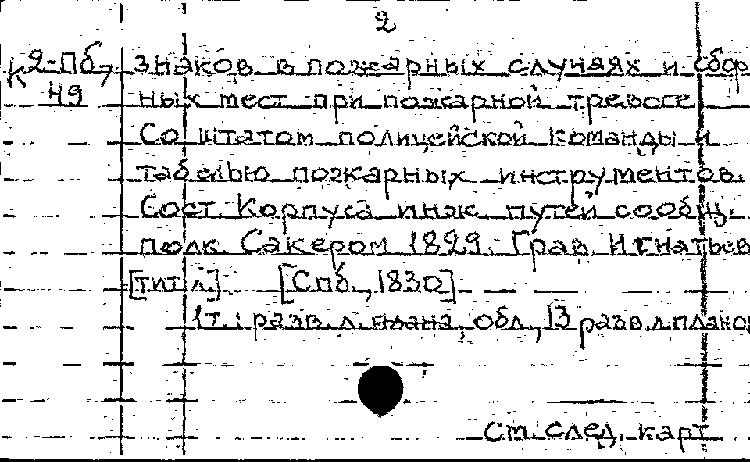 2
К 2-Пб/49
знаков в пожарных случаях и сбор
ных мест при пожарной тревоге
Со штатом полицейской команды и
табелью пожарных инструментов.
Сост. Корпуса инж. путей сообщ.
полк. Сакером 1829. Грав. Игнатьев
[тит. л.] [Спб., 1830]
1 т.: разв. л. плана, обл., 13 разв. л. планов
См. след. карт